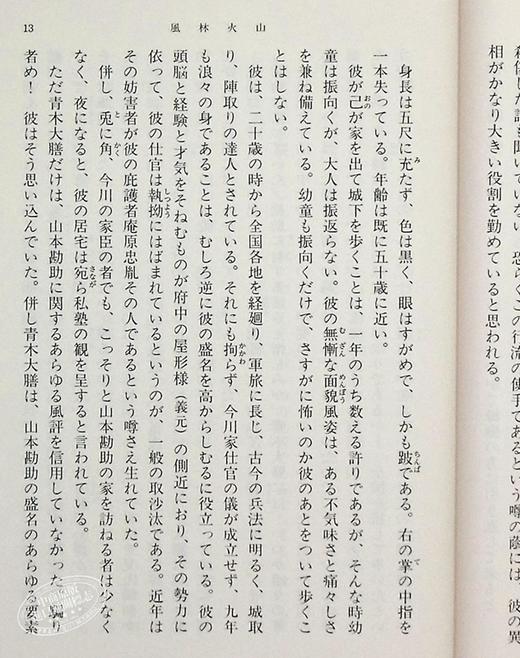 相がかなり大きい役割を勤めていると思われる。
風林火山
13
身長は五尺に充たず、色は黒く、眼はすがめで、しかも跛である。右の掌の中指を
一本失っている。年齢は既に五十歳に近い。
彼が己が家を出て城下を歩くことは、一年のうち数える許りであるが、そんな時幼
童は振向くが、大人は振返らない。彼の無慚な面貌風姿は、ある不気味さと痛々しさ
を兼ね備えている。幼童も振向くだけで、さすがに怖いのか彼のあとをついて歩くこ
とはしない。
彼は、二十歳の時から全国各地を経廻り、軍旅に長じ、古今の兵法に明るく、城取
り、陣取りの達人とされている。それにも拘らず、今川家仕官の儀が成立せず、九年
も浪々の身であることは、むしろ逆に彼の盛名を高からしむるに役立っている。彼の
頭脳と経験と才気をそねむものが府中の屋形様（義元）の側近におり、その勢力に
依って、彼の仕官は執拗にはばまれているというのが、一般の取沙汰である。近年は
その妨害者が彼の庇護者庵原忠胤その人であるという噂さえ生れていた。
併し、兎に角、今川の家臣の者でも、こっそりと山本勘助の家を訪ねる者は少なく
なく、夜になると、彼の居宅は宛ら私塾の観を呈すると言われている。
ただ青木大膳だけは、山本勘助に関するあらゆる風評を信用していなかった。騙り
者め！　彼はそう思い込んでいた。併し青木大膳は、山本勘助の盛名のあらゆる要素